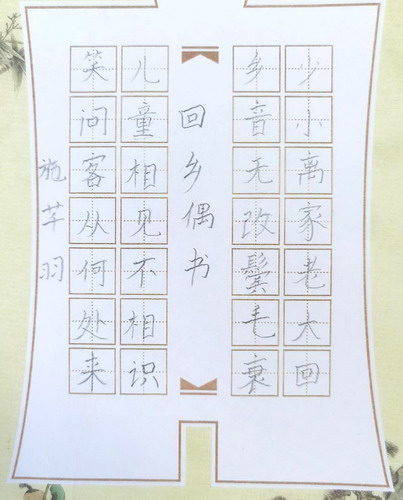 少小离家老大回
乡音无改鬓毛衰
回乡偶书
儿童相见不相识
笑问客从何处来
施芊羽